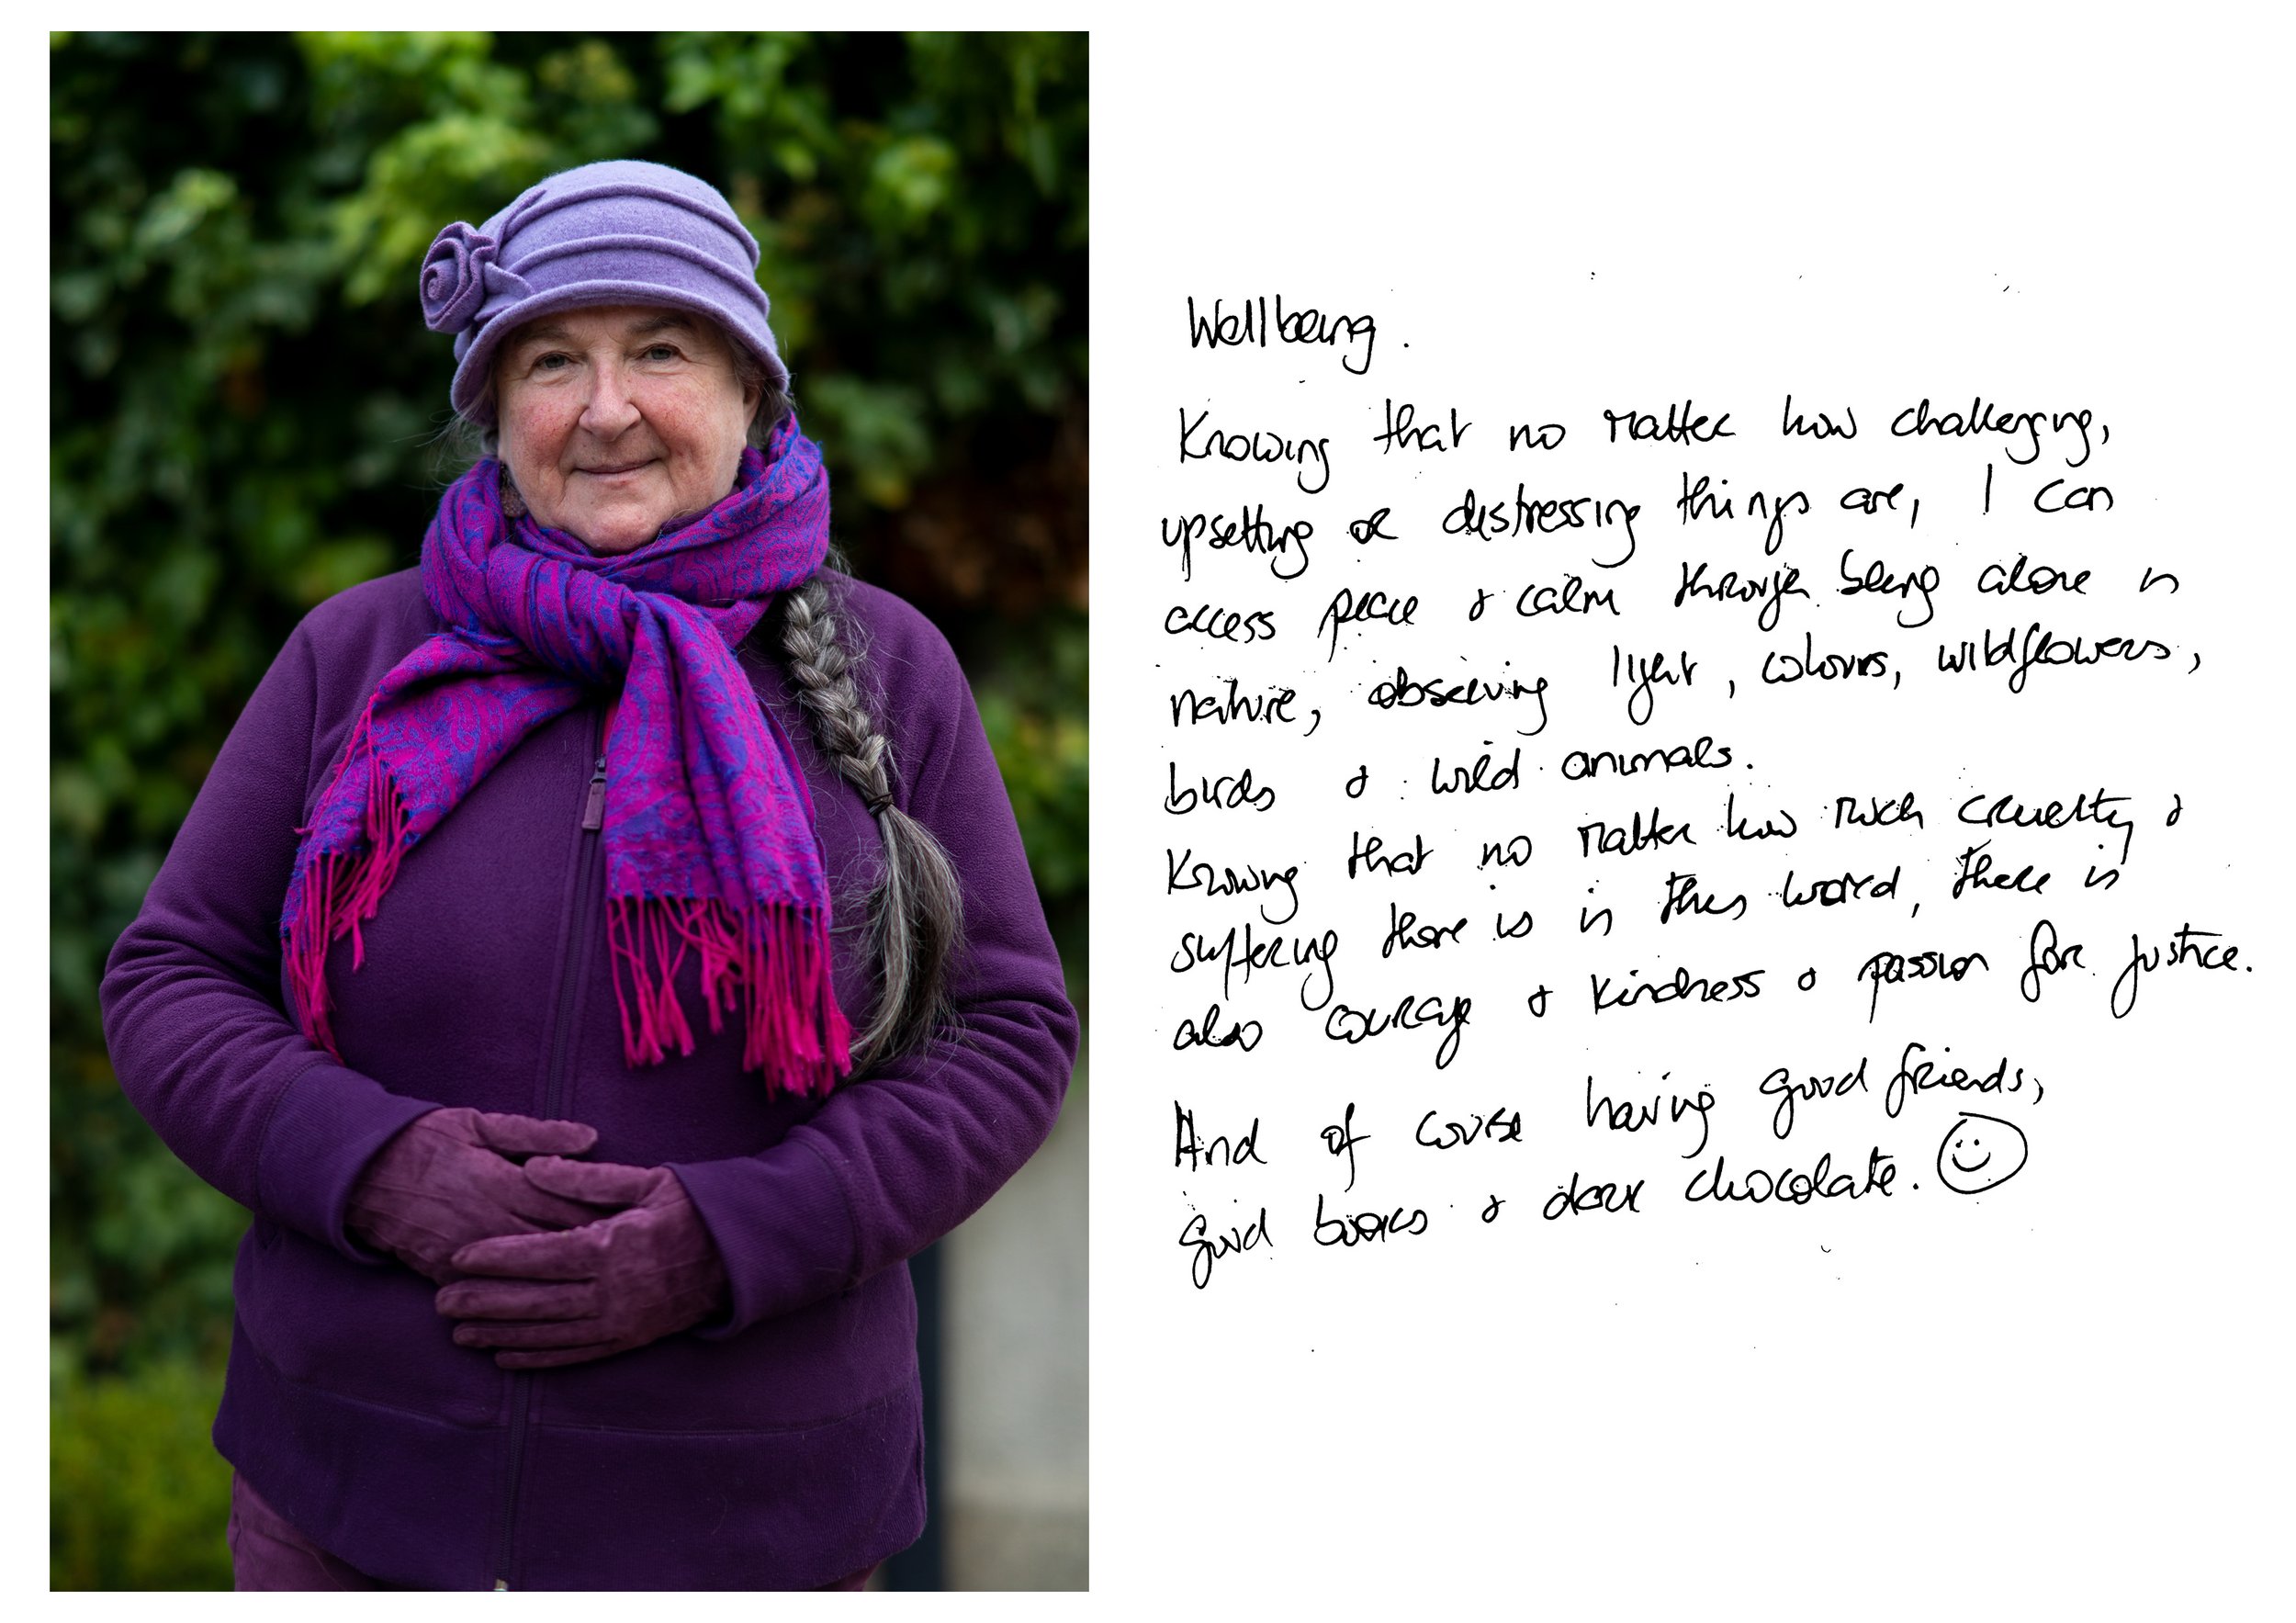 Wellbeing.
Knowing that no matter how challenging,
upsetting or distressing things are, I can
access peace & calm through being alone in
nature, observing light, colours, wildflowers,
birds & wild animals.
Knowing that no matter how much cruelty &
suffering there is in this world, there is
also courage & kindness & passion for justice.
And of course having good friends,
good books & dark chocolate. ☺